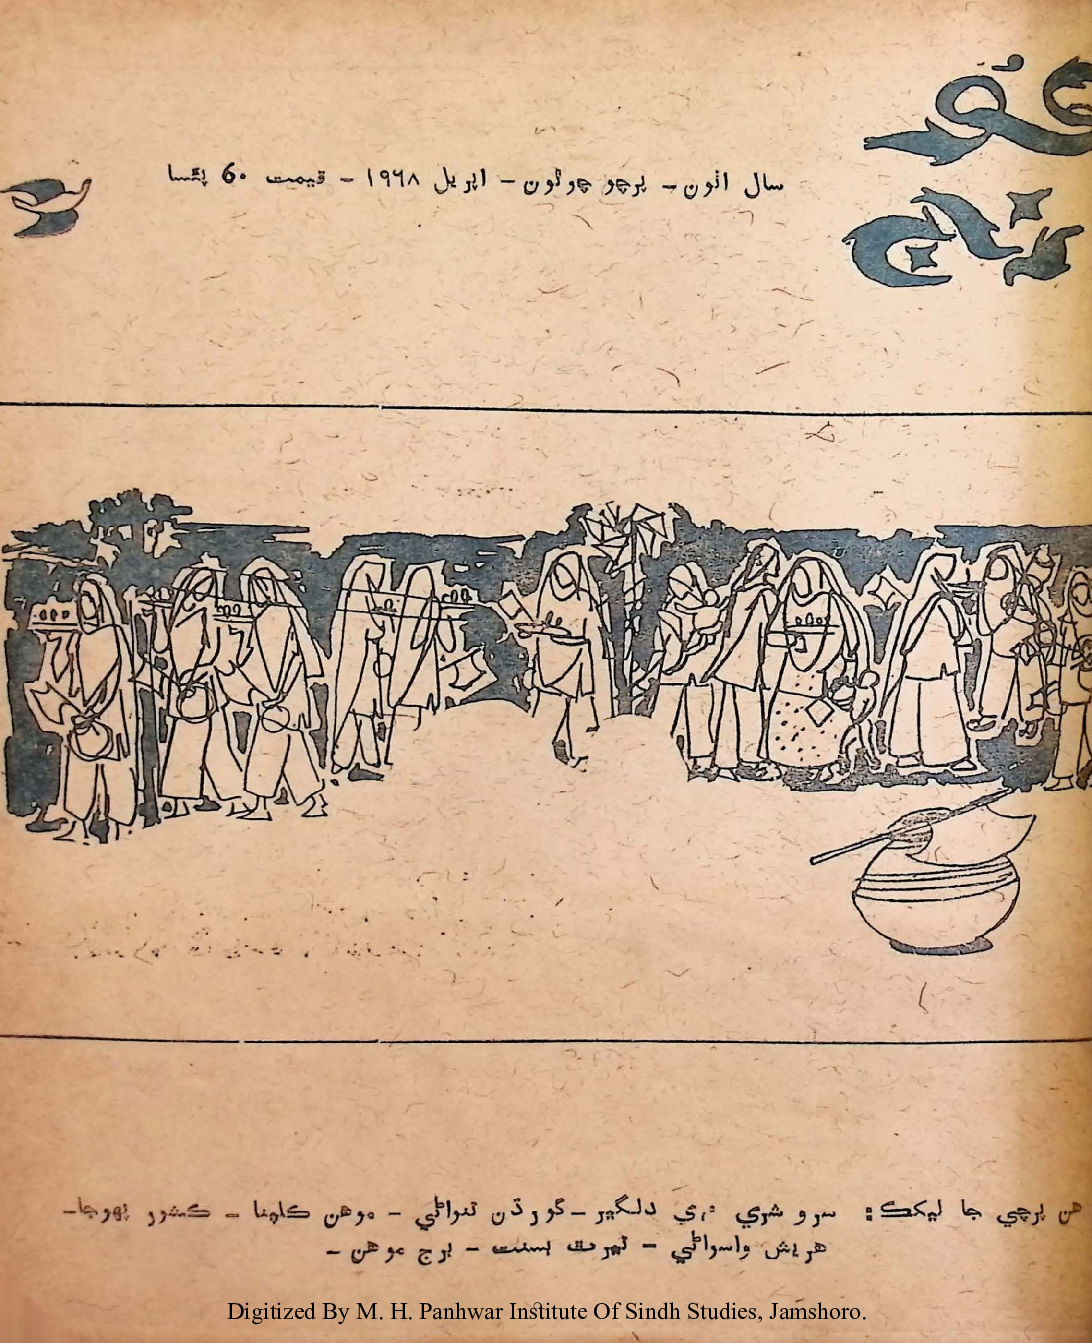 سال اٺون – پرچو چوٿون – اپريل ١٩٦٨ – قيمت 60 پئسا
هن پرچي جا ليکڪ: سرو شري هري دلگير – گورڌن تنواڻي – موهن ڪلپنا – ڪشور پهوجا –
هريش واسواڻي – تيرٿ بسنت – برج موهن –
Digitized By M. H. Panhwar Institute Of Sindh Studies, Jamshoro.